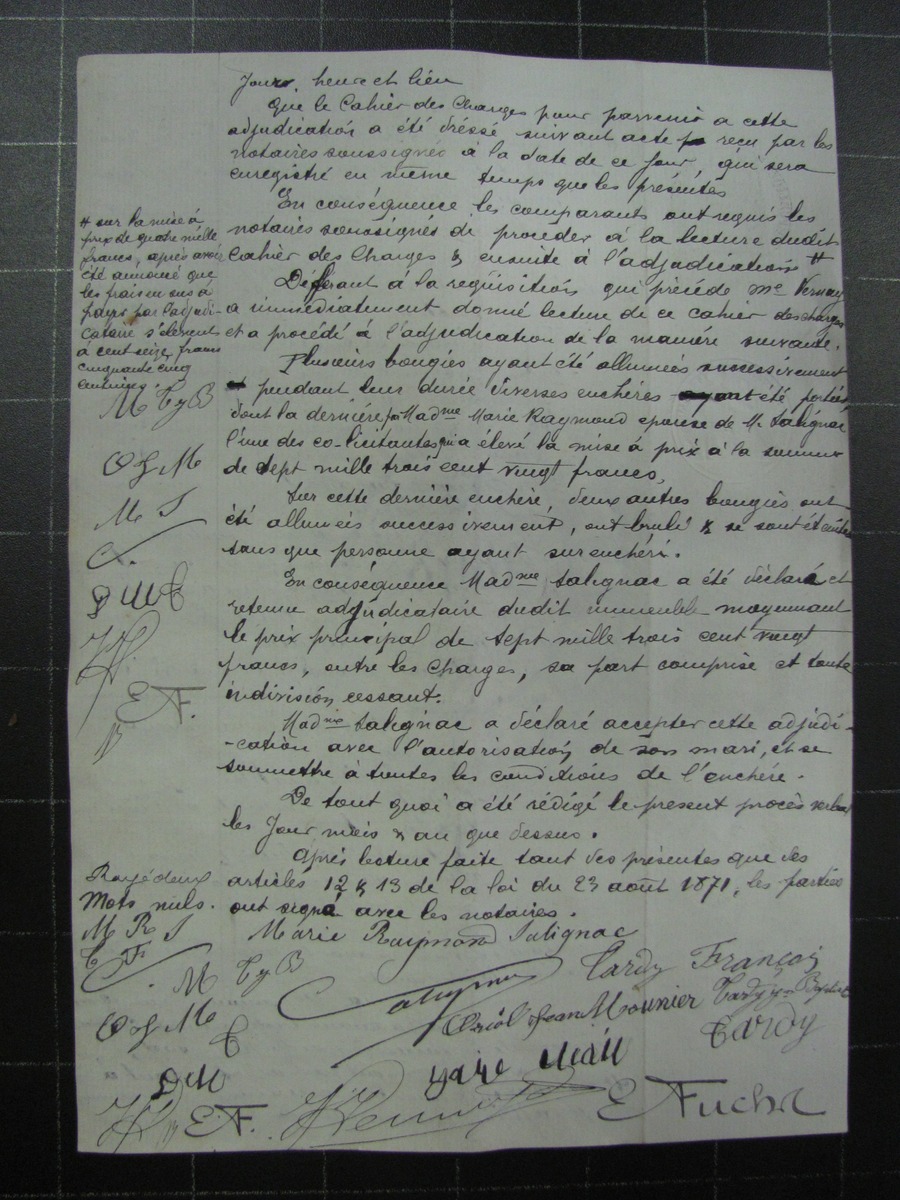 Jour, heure et lieu
Que le Cahier des Charges pour parvenir a cette
adjudication a été dressé suivant acte reçu par les
notaires soussignés à la date de ce jour, qui sera
enregistré en même temps que les présentes
En conséquence les comparants ont requis les
notaires soussignés de procéder à la lecture dudit
Cahier des Charges & ensuite à l'adjudication #
# sur la mise à
prix de quatre mille
francs, après avoir
été annoncé que
les frais en sus à
payer par l'adjudi-
cataire s'élèvent
à cent seize francs
cinquante cinq
centimes.
M Ty B
O J M
M S
E F.
Déférant à la réquisition qui précède Me Vernay
a immédiatement donné lecture de ce cahier des charges
et a procédé à l'adjudication de la manière suivante.
Plusieurs bougies ayant été allumées successivement
et pendant leur durée diverses enchères ayant été portées
dont la dernière par Madme Marie Raymond epouse de M. Salignac
l'une des co-licitantes qui a élevé la mise à prix à la somme
de sept mille trois cent vingt francs,
Sur cette dernière enchère, deux autres bougies ont
été allumées successivement, ont brulé & se sont éteintes
sans que personne ayant surenchéri.
En conséquence Madme Salignac a été déclaré et
retenue adjudicataire dudit immeuble moyennant
le prix principal de sept mille trois cent vingt
francs, outre les charges, sa part comprise et toute
indivision cessant.
Madme Salignac a déclaré accepter cette adjudi-
-cation avec l'autorisation de son mari, et se
soumettre à toutes les conditions de l'enchère.
De tout quoi a été rédigé le present procès verbal
les Jour mois & an que dessus.
Après lecture faite tant des présentes que des
articles 12 & 13 de la loi du 23 août 1871, les parties
ont signé avec les notaires.
Rayé deux
Mots nuls.
M R S
T F
M Ty B
O J M
E F.
Marie Raymond Salignac
Tardy François
Oriol Jean Mounier Tardy Bptiste
Tardy
E Fuchs